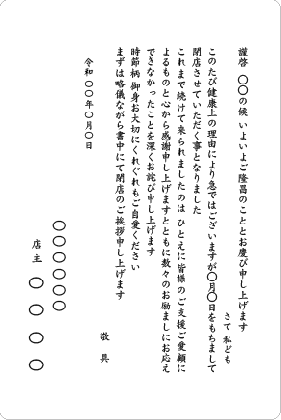 謹啓 〇〇の候 いよいよご隆昌のこととお慶び申し上げます
さて 私ども
このたび健康上の理由により急ではございますが〇月〇日をもちまして
閉店させていただく事となりました
これまで続けて来られましたのは ひとえに皆様のご支援ご愛顧に
よるものと心から感謝申し上げますとともに数々のお励ましにお応え
できなかったことを深くお詫び申し上げます
時節柄 御身お大切にくれぐれもご自愛ください
まずは略儀ながら書中にて閉店のご挨拶申し上げます
敬 具
令和〇〇年〇月〇日
〇〇〇〇〇〇
店主 〇 〇 〇 〇